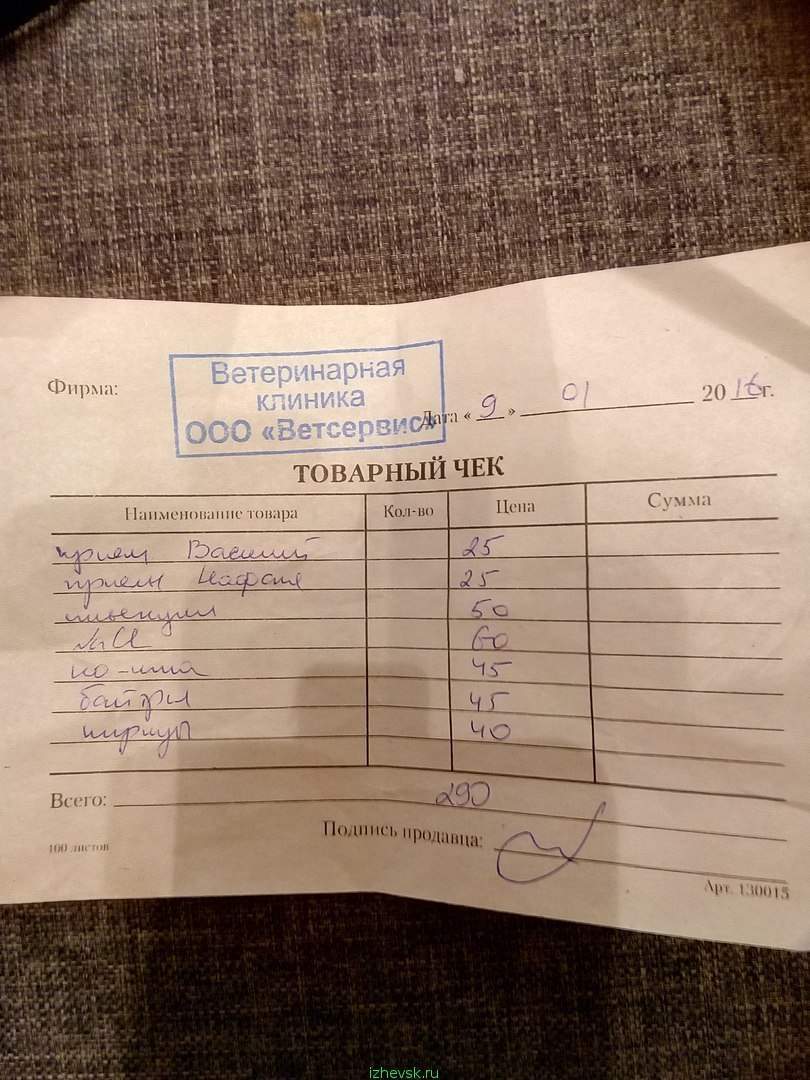 Ветеринарная
клиника
ООО «Ветсервис»
Фирма:
Дата « 9 » 01 2016 г.
ТОВАРНЫЙ ЧЕК
Наименование товара Кол-во Цена Сумма
прием Василий 25
прием Нафаня 25
инъекции 50
NaCl 60
но-шпа 45
байтрил 45
шприцы 40
Всего: 290
Подпись продавца:
100 листов
Арт. 130015
izhevsk.ru